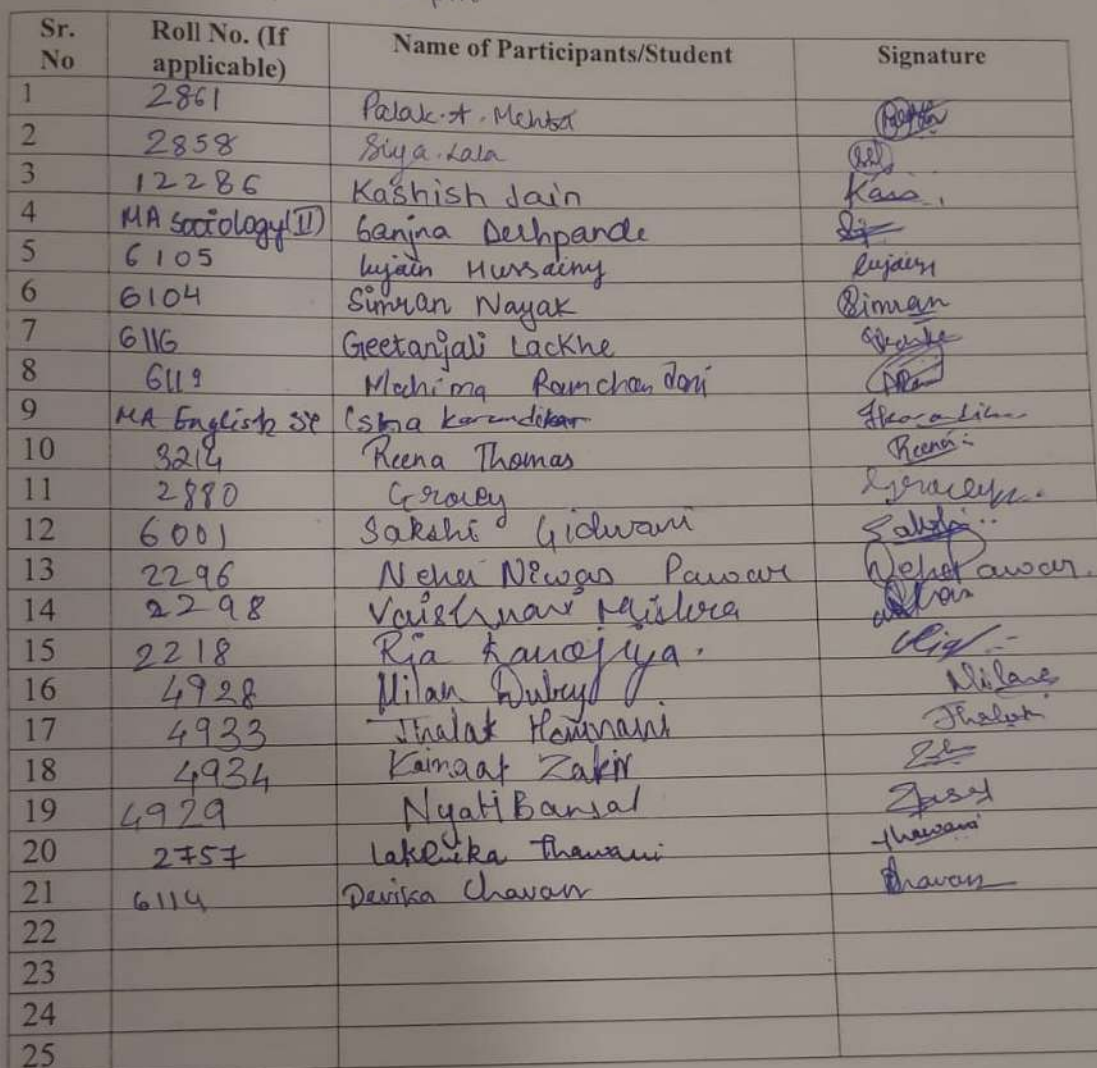 Sr. No | Roll No. (If applicable) | Name of Participants/Student | Signature
1 | 2861 | Palak. A. Mehta |
2 | 2858 | Siya. Lala |
3 | 12286 | Kashish Jain | Kash.
4 | MA Sociology (II) | Sanjna Deshpande |
5 | 6105 | Lujain Hussainy | Lujain
6 | 6104 | Simran Nayak | Simran
7 | 6116 | Geetanjali Lackhe |
8 | 6119 | Mahima Ramchandani |
9 | MA English | Isha Karandikar |
10 | Reena Thomas | Reena
11 | 2880 | Gracey | Gracey
12 | 6001 | Sakshi Gidwani | Sakshi
13 | 2296 | Neha Niwas Pawar | Neha Pawar.
14 | 2298 | Vaishnavi Mishra |
15 | 2218 | Ria Kanojiya. | Ria
16 | 4928 | Milan Dubey | Milan
17 | 4933 | Jhalak | Jhalak
18 | 4934 | Kainaat Zakir |
19 | 4929 | Nyati Bansal |
20 | 2757 | Thawani | Thawani
21 | 6114 | Devika Chavan | Chavan
22
23
24
25